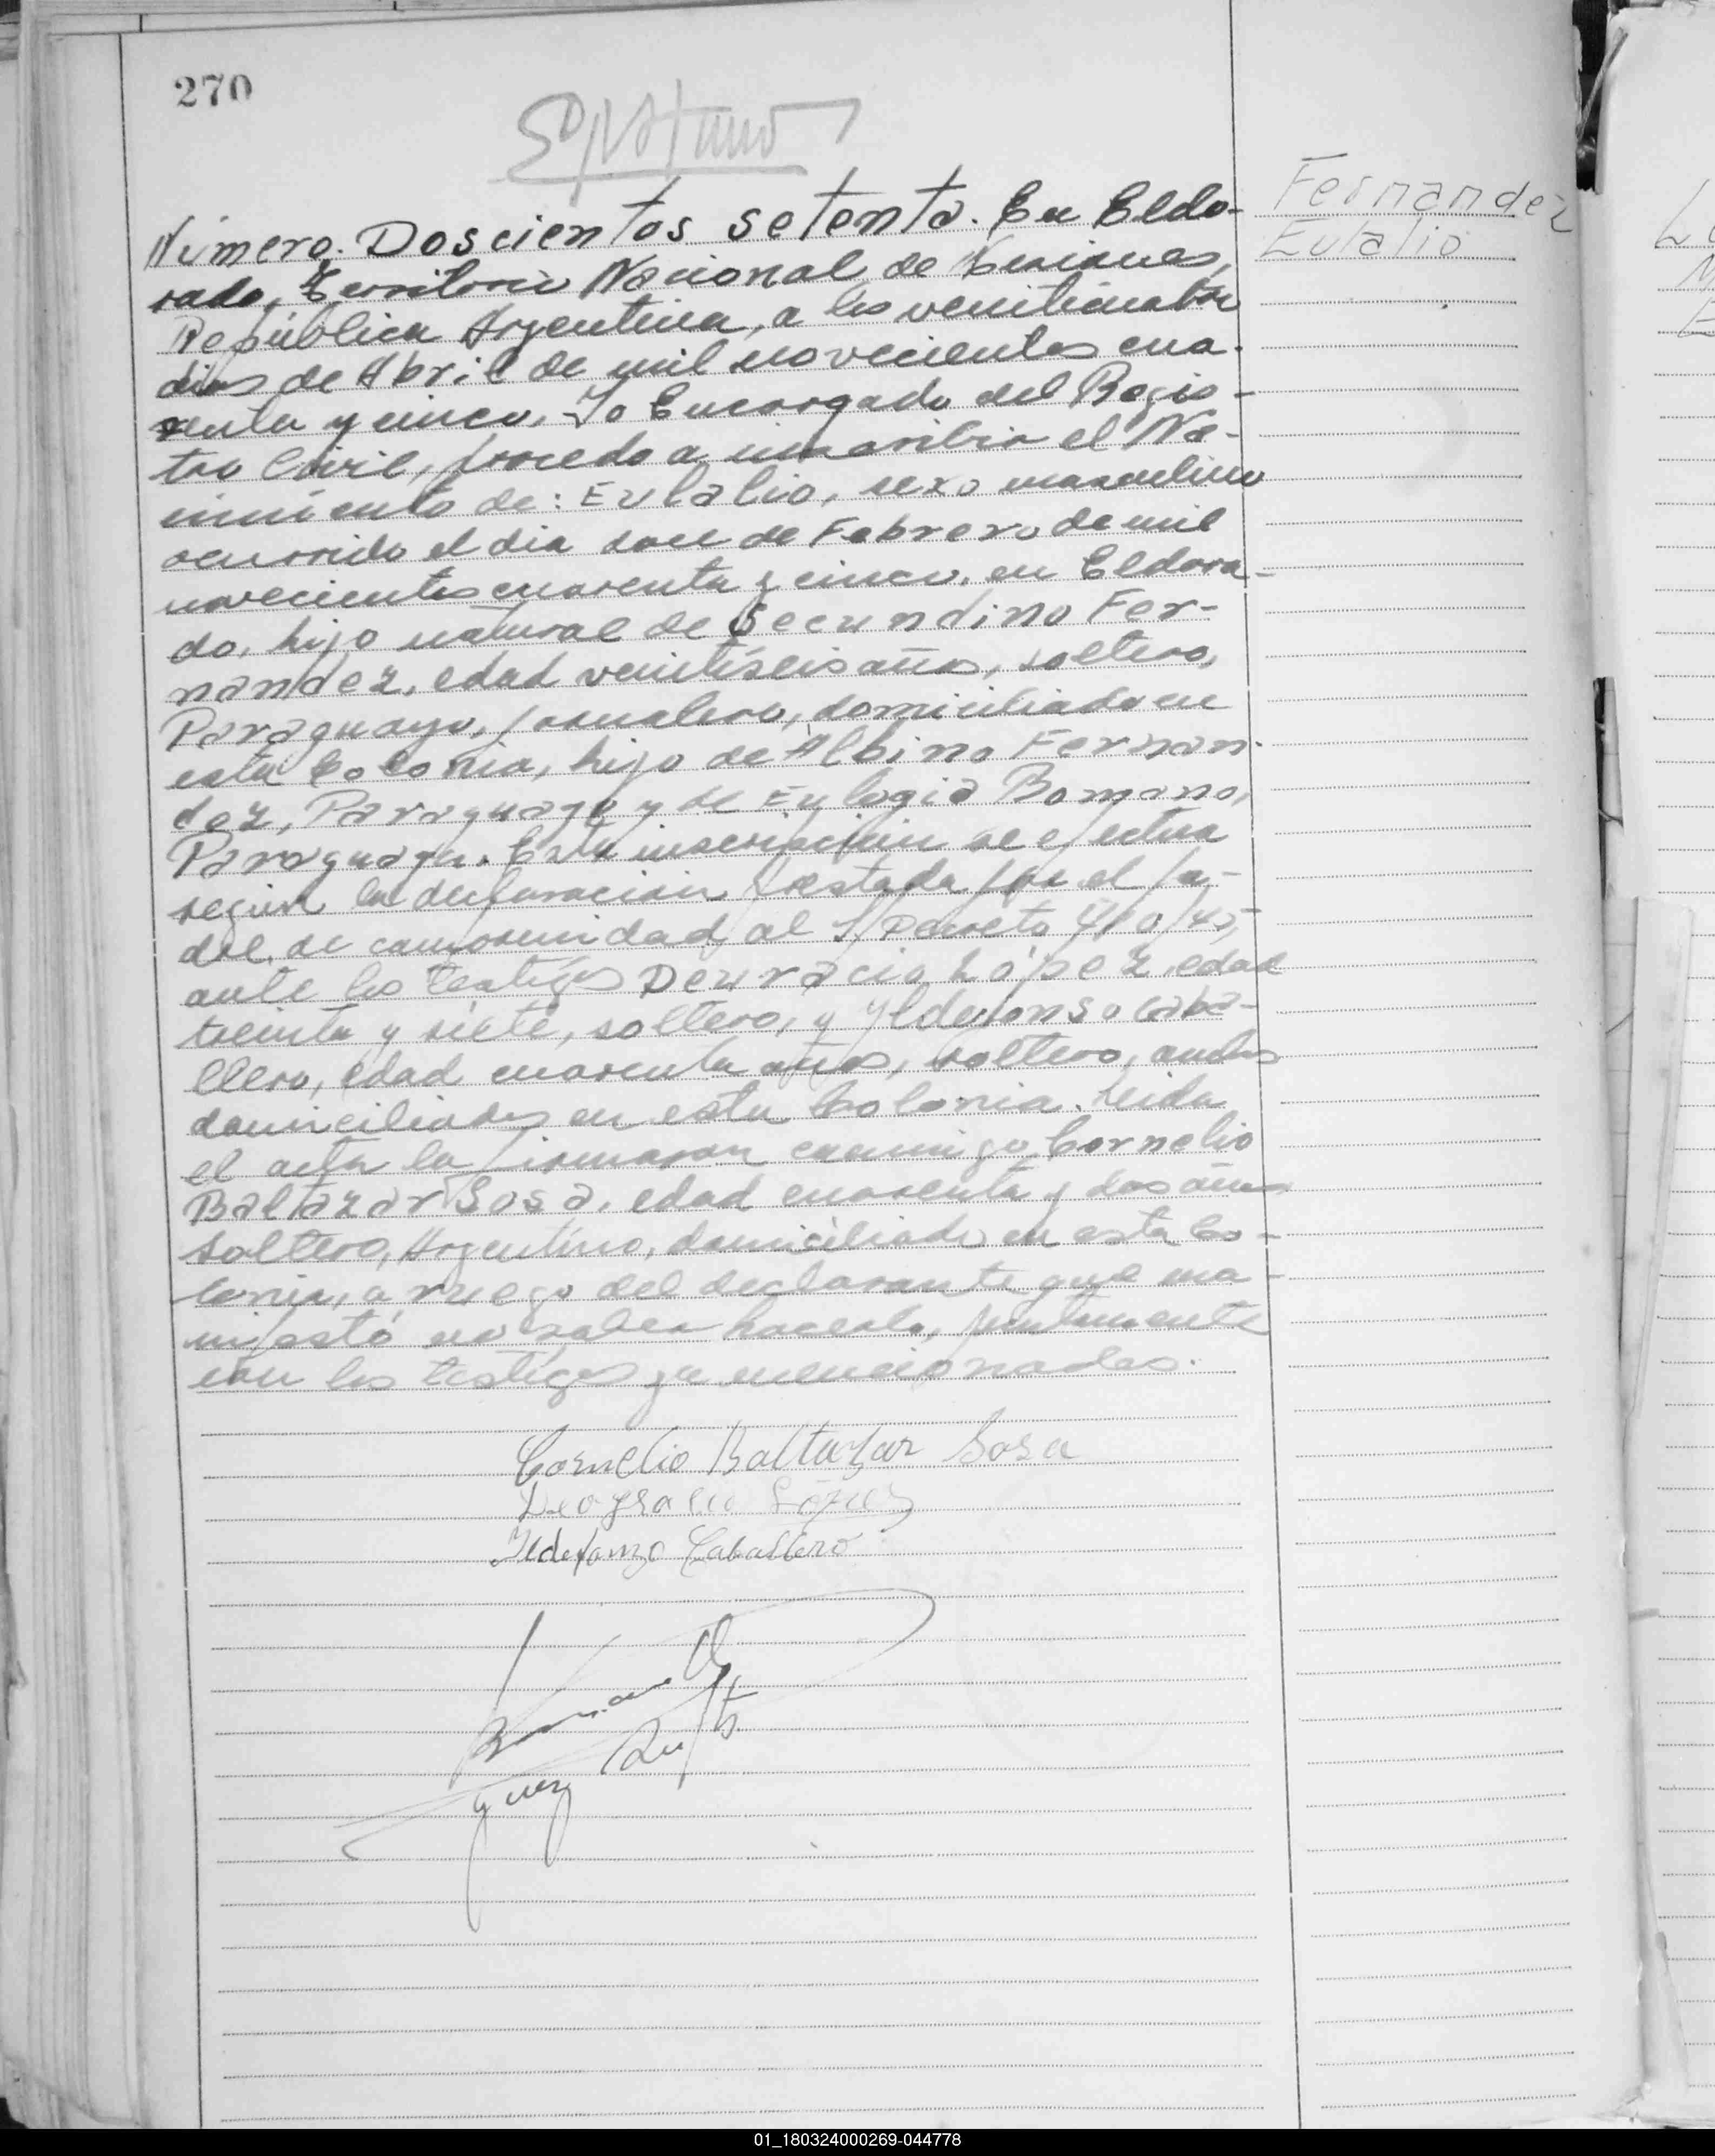 270
Fernandez
Eulalio
Número. Doscientos setenta. En Eldo-
rado, Territorio Nacional de Misiones,
República Argentina, a los veinticuatro
dias de Abril de mil novecientos cua-
renta y cinco, Yo Encargado del Regis-
tro Civil, procedo a inscribir el Na-
cimiento de: Eulalio, sexo masculino
ocurrido el dia doce de Febrero de mil
novecientos cuarenta y cinco, en Eldora-
do, hijo natural de Secundino Fer-
nandez, edad veintiseis años, soltero,
Paraguayo, jornalero, domiciliado en
esta Colonia, hijo de Albino Fernan-
dez, Paraguayo y de Eulogia Romano,
Paraguaya. Esta inscripción se efectua
según la declaración prestada por el pa-
dre, de conformidad al S/Decreto 410/45,
ante los testigos Deuracia López, edad
treinta y siete, soltero, y Yldefonso Caba-
llero, edad cuarenta años, soltero, ambos
domiciliados en esta Colonia. Leida
el acta la firmaron conmigo, Cornelio
Baltazar Sosa, edad cuarenta y dos años
soltero, Argentino, domiciliado en esta Co-
lonia, a ruego del declarante que ma-
nifestó no saber hacerlo, juntamente
con los testigos ya mencionados.
Cornelio Baltazar Sosa
Deogracio López
Ildefonzo Caballero
01_180324000269-044778